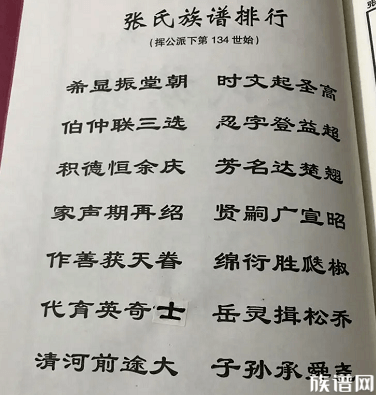 张氏族谱排行
(挥公派下第134世始)
希显振堂朝 时文起圣高
伯仲联三选 忍字登益超
积德恒余庆 芳名达楚翘
家声期再绍 贤嗣广宣昭
作善获天眷 绵衍胜瓞椒
代育英奇士 岳灵揖松乔
清河前途大 子孙承舜尧
族谱网